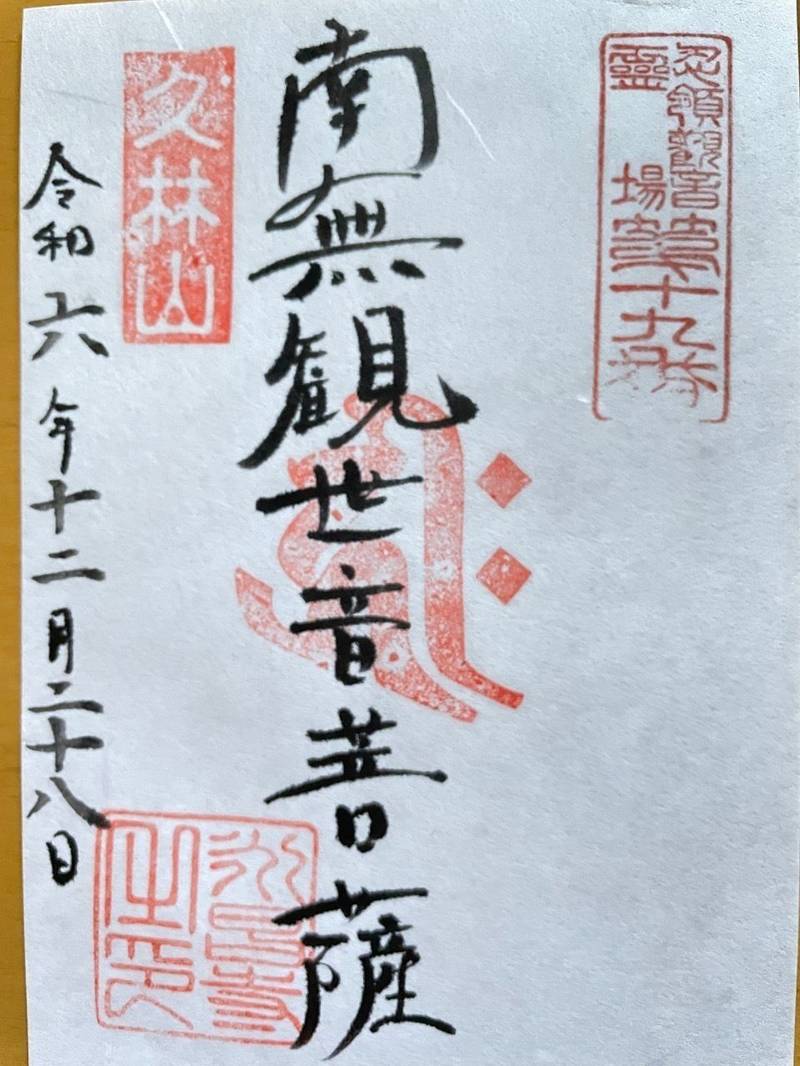 忍領觀音
靈場
第十九番
南無観世音菩薩
久林山
令和六年十二月二十八日
之印